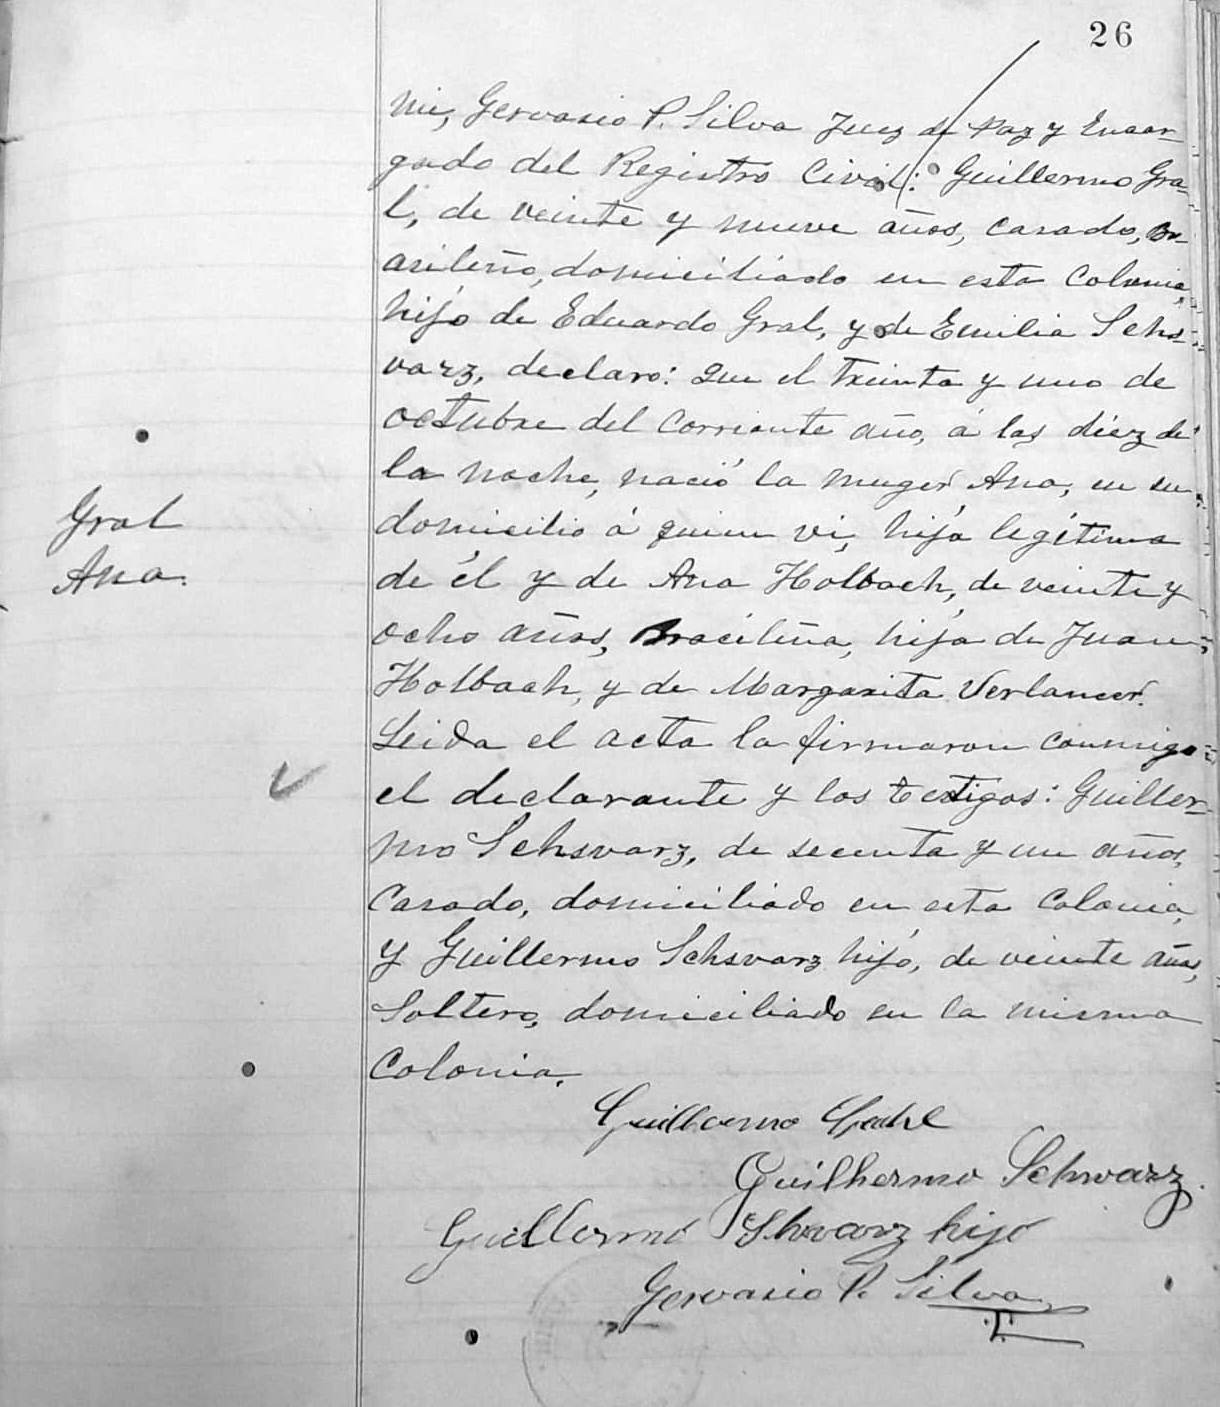 26
mi, Gervasio P. Silva Juez de Paz y Encar-
gado del Registro Civil: Guillermo Gra-
l, de veinte y nueve años, casado, Br-
asileño, domiciliado en esta Colonia,
hijo de Eduardo Gral, y de Emilia Schs-
varz, declaro: Que el treinta y uno de
octubre del corriente año, á las diéz de
la noche, nació la muger Ana, en su
domicilio á quien vi, hija legítima
de él y de Ana Holbach, de veinte y
ocho años, Bracileña, hija de Juan
Holbach, y de Margarita Verlancer.
Leida el acta la firmaron conmigo
el declarante y los testigos: Guiller-
mo Schsvarz, de secenta y un años,
casado, domiciliado en esta Colonia,
y Guillermo Schsvarz hijo, de veinte años,
Soltero, domiciliado en la misma
Colonia.
Gral
Ana.
Guillermo Grahl
Guilhermo Schwarz.
Guillermo Shwarz hijo
Gervasio P. Silva